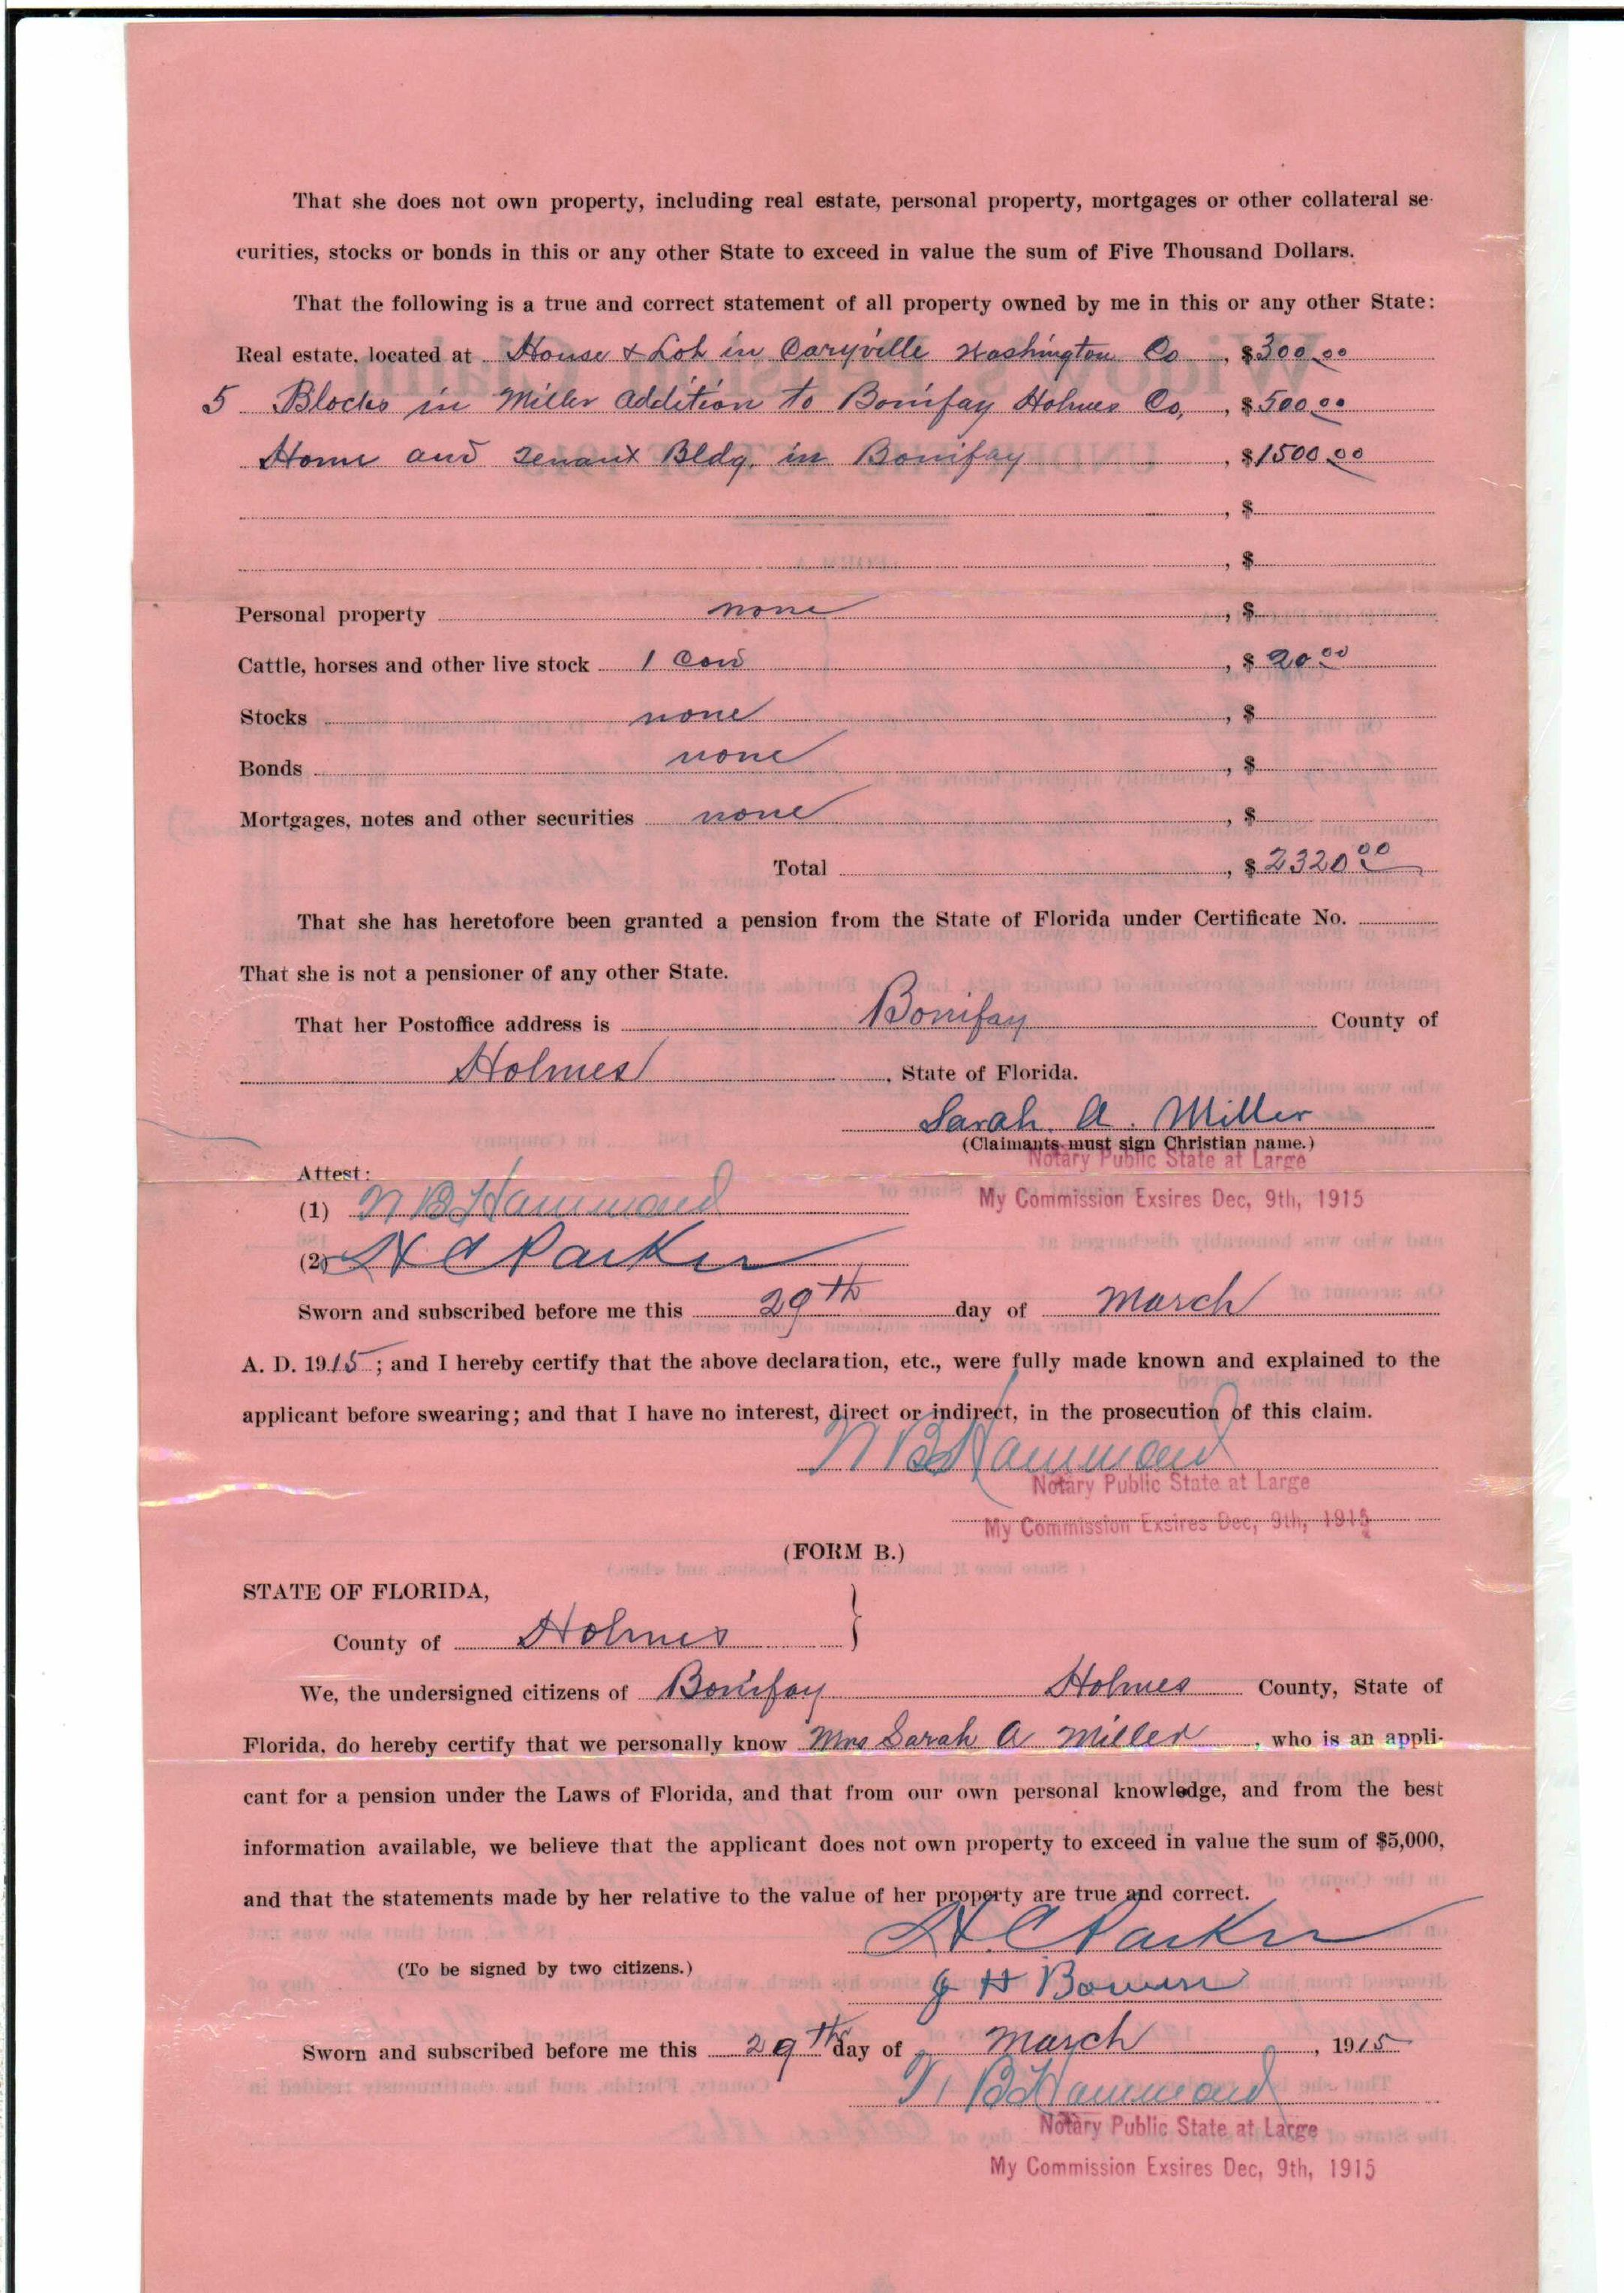 That she does not own property, including real estate, personal property, mortgages or other collateral se-
curities, stocks or bonds in this or any other State to exceed in value the sum of Five Thousand Dollars.
That the following is a true and correct statement of all property owned by me in this or any other State:
Real estate, located at House & Lot in Caryville Washington Co , $300.00
5 Blocks in Miller addition to Bonifay Holmes Co, , $500.00
Home and Tenant Bldg. in Bonifay , $1500.00
, $
, $
Personal property none , $
Cattle, horses and other live stock 1 Cow , $ 20.00
Stocks none , $
Bonds none , $
Mortgages, notes and other securities none , $
Total , $ 2320.00
That she has heretofore been granted a pension from the State of Florida under Certificate No.
That she is not a pensioner of any other State.
That her Postoffice address is Bonifay County of
Holmes , State of Florida.
Sarah. A. Miller
(Claimants must sign Christian name.)
Notary Public State at Large
Attest:
My Commission Exsires Dec, 9th, 1915
(1) N B Hammond
(2) H C Parker
Sworn and subscribed before me this 29th day of March
A. D. 1915; and I hereby certify that the above declaration, etc., were fully made known and explained to the
applicant before swearing; and that I have no interest, direct or indirect, in the prosecution of this claim.
N B Hammond
Notary Public State at Large
My Commission Exsires Dec, 9th, 1915
(FORM B.)
STATE OF FLORIDA,
County of Holmes }
We, the undersigned citizens of Bonifay Holmes County, State of
Florida, do hereby certify that we personally know Mrs Sarah A Miller , who is an appli-
cant for a pension under the Laws of Florida, and that from our own personal knowledge, and from the best
information available, we believe that the applicant does not own property to exceed in value the sum of $5,000,
and that the statements made by her relative to the value of her property are true and correct.
H. C Parker
(To be signed by two citizens.)
J H Bowen
Sworn and subscribed before me this 29th day of March , 1915
N B Hammond
Notary Public State at Large
My Commission Exsires Dec, 9th, 1915